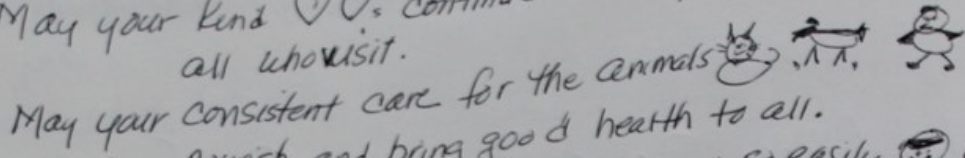 May your kind ♡♡s
all who visit.
May your consistent care for the animals
and bring good health to all.
easily